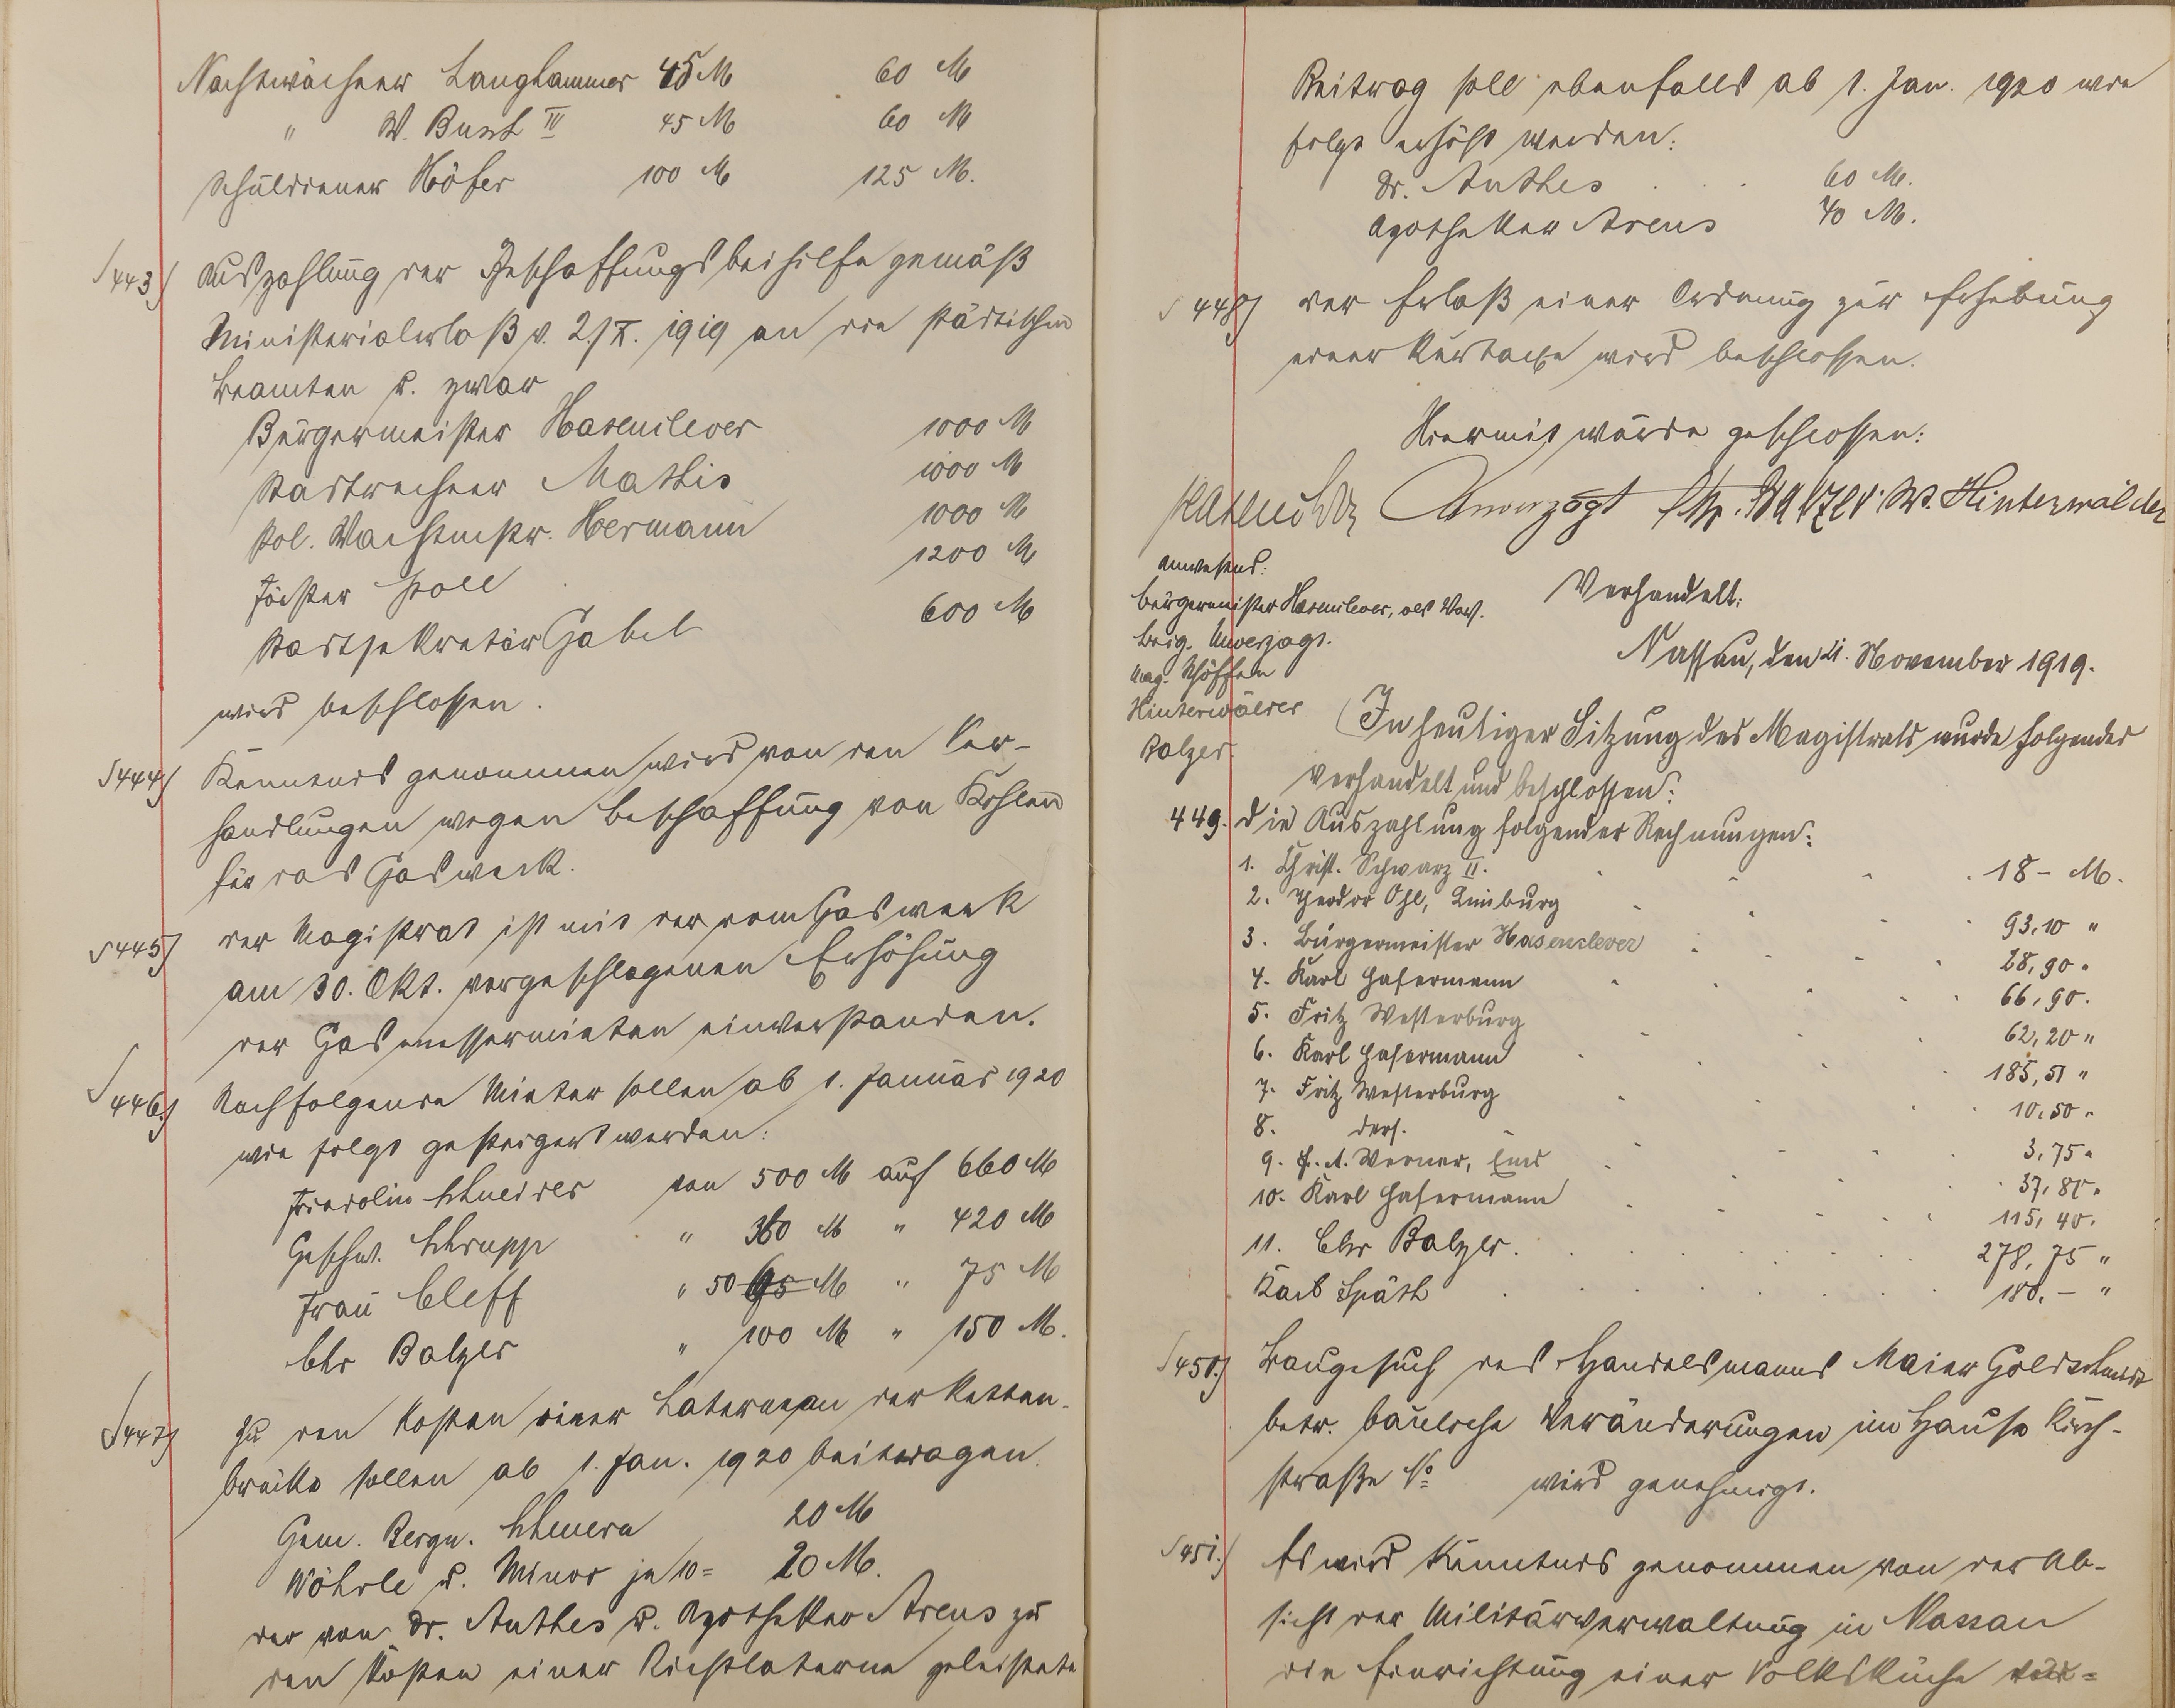 Nachtwächter Langhammer 45 M 60 M
" W. Busch IV 45 M 60 M
Schuldiener Höfer 100 M 125 M.
§ 443) Auszahlung der Beschaffungsbeihilfe gemäß
Ministerialerlaß v. 2./X. 1919 an die städtischen
Beamten u. zwar
Bürgermeister Hasenclever 1000 M
Stadtrechner Mathis 1000 M
Pol. Wachtmstr. Hermann 1000 M
Förster Poll 1200 M
Stadtsekretär Gabel 600 M
wird beschlossen.
§ 444) Kenntnis genommen wird von den Ver-
handlungen wegen Beschaffung von Kohlen
für das Gaswerk.
§ 445) Der Magistrat ist mit der vom Gaswerk
am 30. Okt. vorgeschlagenen Erhöhung
der Gasmessermieten einverstanden.
§ 446.) Nachfolgende Mieter sollen ab 1. Januar 1920
wie folgt gesteigert werden:
Fridolin Schneider von 500 M auf 660 M
Geschw. Schrupp " 360 M " 420 M
Frau Cleff " 50 M " 75 M
Chr Balzer " 100 M " 150 M.
§ 447) Zu den Kosten einer Laterne an der Ketten-
brücke sollen ab 1. Jan. 1920 beitragen.
Gem. Bergn. Scheuern 20 M
Wöhrle u. Minor je 10 = 20 M.
Der von Dr. Anthes u. Apotheker Arens zu
den Kosten einer Richtlaterne geleistete
Beitrag soll ebenfalls ab 1. Jan. 1920 wie
folgt erhöht werden:
Dr. Anthes 60 M.
Apotheker Arens 40 M.
§ 448) Der Erlaß einer Ordnung zur Erhebung
einer Kurtaxe wird beschlossen.
Hiermit wurde geschlossen:
Hasenclever Unverzagt Chr. Balzer W. Hinterwälder
Anwesend:
Bürgermeister Hasenclever, als Vors.
Beig. Unverzagt.
Mag. Schöffen
Hinterwälder
Balzer.
Verhandelt:
Nassau, den 21. November 1919.
In heutiger Sitzung des Magistrats wurde folgendes
verhandelt und beschlossen:
449. Die Auszahlung folgender Rechnungen:
1. Christ. Schwarz II. 18 - M.
2. Theodor Ohl, Limburg 93,10 "
3. Bürgermeister Hasenclever 28,90 "
4. Karl Hafermann 66,90 "
5. Fritz Westerburg 62,20 "
6. Karl Hafermann 185,51 "
7. Fritz Westerburg 10,50 "
8. ders. 3,75 "
9. H. A. Werner, Ems 37,80 "
10. Karl Hafermann 115,40 "
11. Chr Balzer. 278,75 "
Karl Späth 180,- "
§ 450.) Baugesuch des Handelsmanns Maier Goldschmidt
betr. bauliche Veränderungen im Hause Kirch-
straße No wird genehmigt.
§ 451.) Es wird Kenntnis genommen von der Ab-
sicht der Militärverwaltung in Nassau
die Einrichtung einer Volksküche